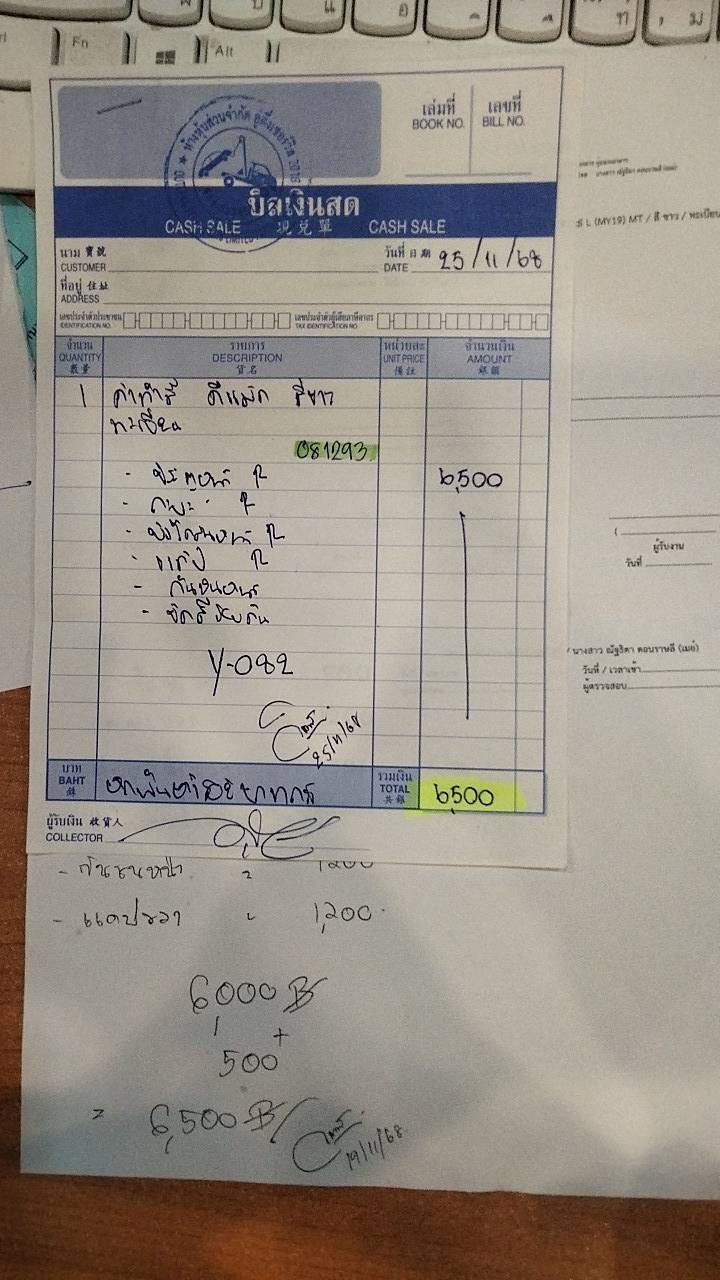 Fn
Alt
เล่มที่ เลขที่
BOOK NO. BILL NO.
ห้างหุ้นส่วนจำกัด
บิลเงินสด
CASH SALE 現兌單 CASH SALE
นาม 寶號
CUSTOMER
วันที่ 日期
DATE 25/11/68
ที่อยู่ 住址
ADDRESS
เลขประจำตัวประชาชน
IDENTIFICATION NO.
เลขประจำตัวผู้เสียภาษีอากร
TAX IDENTIFICATION NO.
จำนวน รายการ หน่วยละ จำนวนเงิน
QUANTITY DESCRIPTION UNIT PRICE AMOUNT
數量 貨名 備註 銀額
1 ค่าทำสี ดีแม็ก สีขาว
ทะเบียน
081293
- ประตูหน้า R 6,500
R
- R
- แก้ป R
- กันชนหน้า
Y-082
25/11/68
บาท
BAHT
銖
หกพันห้าร้อยบาทถ้วน
รวมเงิน
TOTAL 6500
共銀
ผู้รับเงิน 收貨人
COLLECTOR
- กันชนหน้า = 1200
- แคปขวา = 1,200
6,000 B
+
500
= 6,500 B
19/11/68
L (MY19) MT / สี ขาว / ทะเบียน
ผู้รับงาน
วันที่
/ นางสาว ณัฐธิดา ดอนราษลี (เมย์)
วันที่ / เวลาเข้า
ผู้ตรวจสอบ